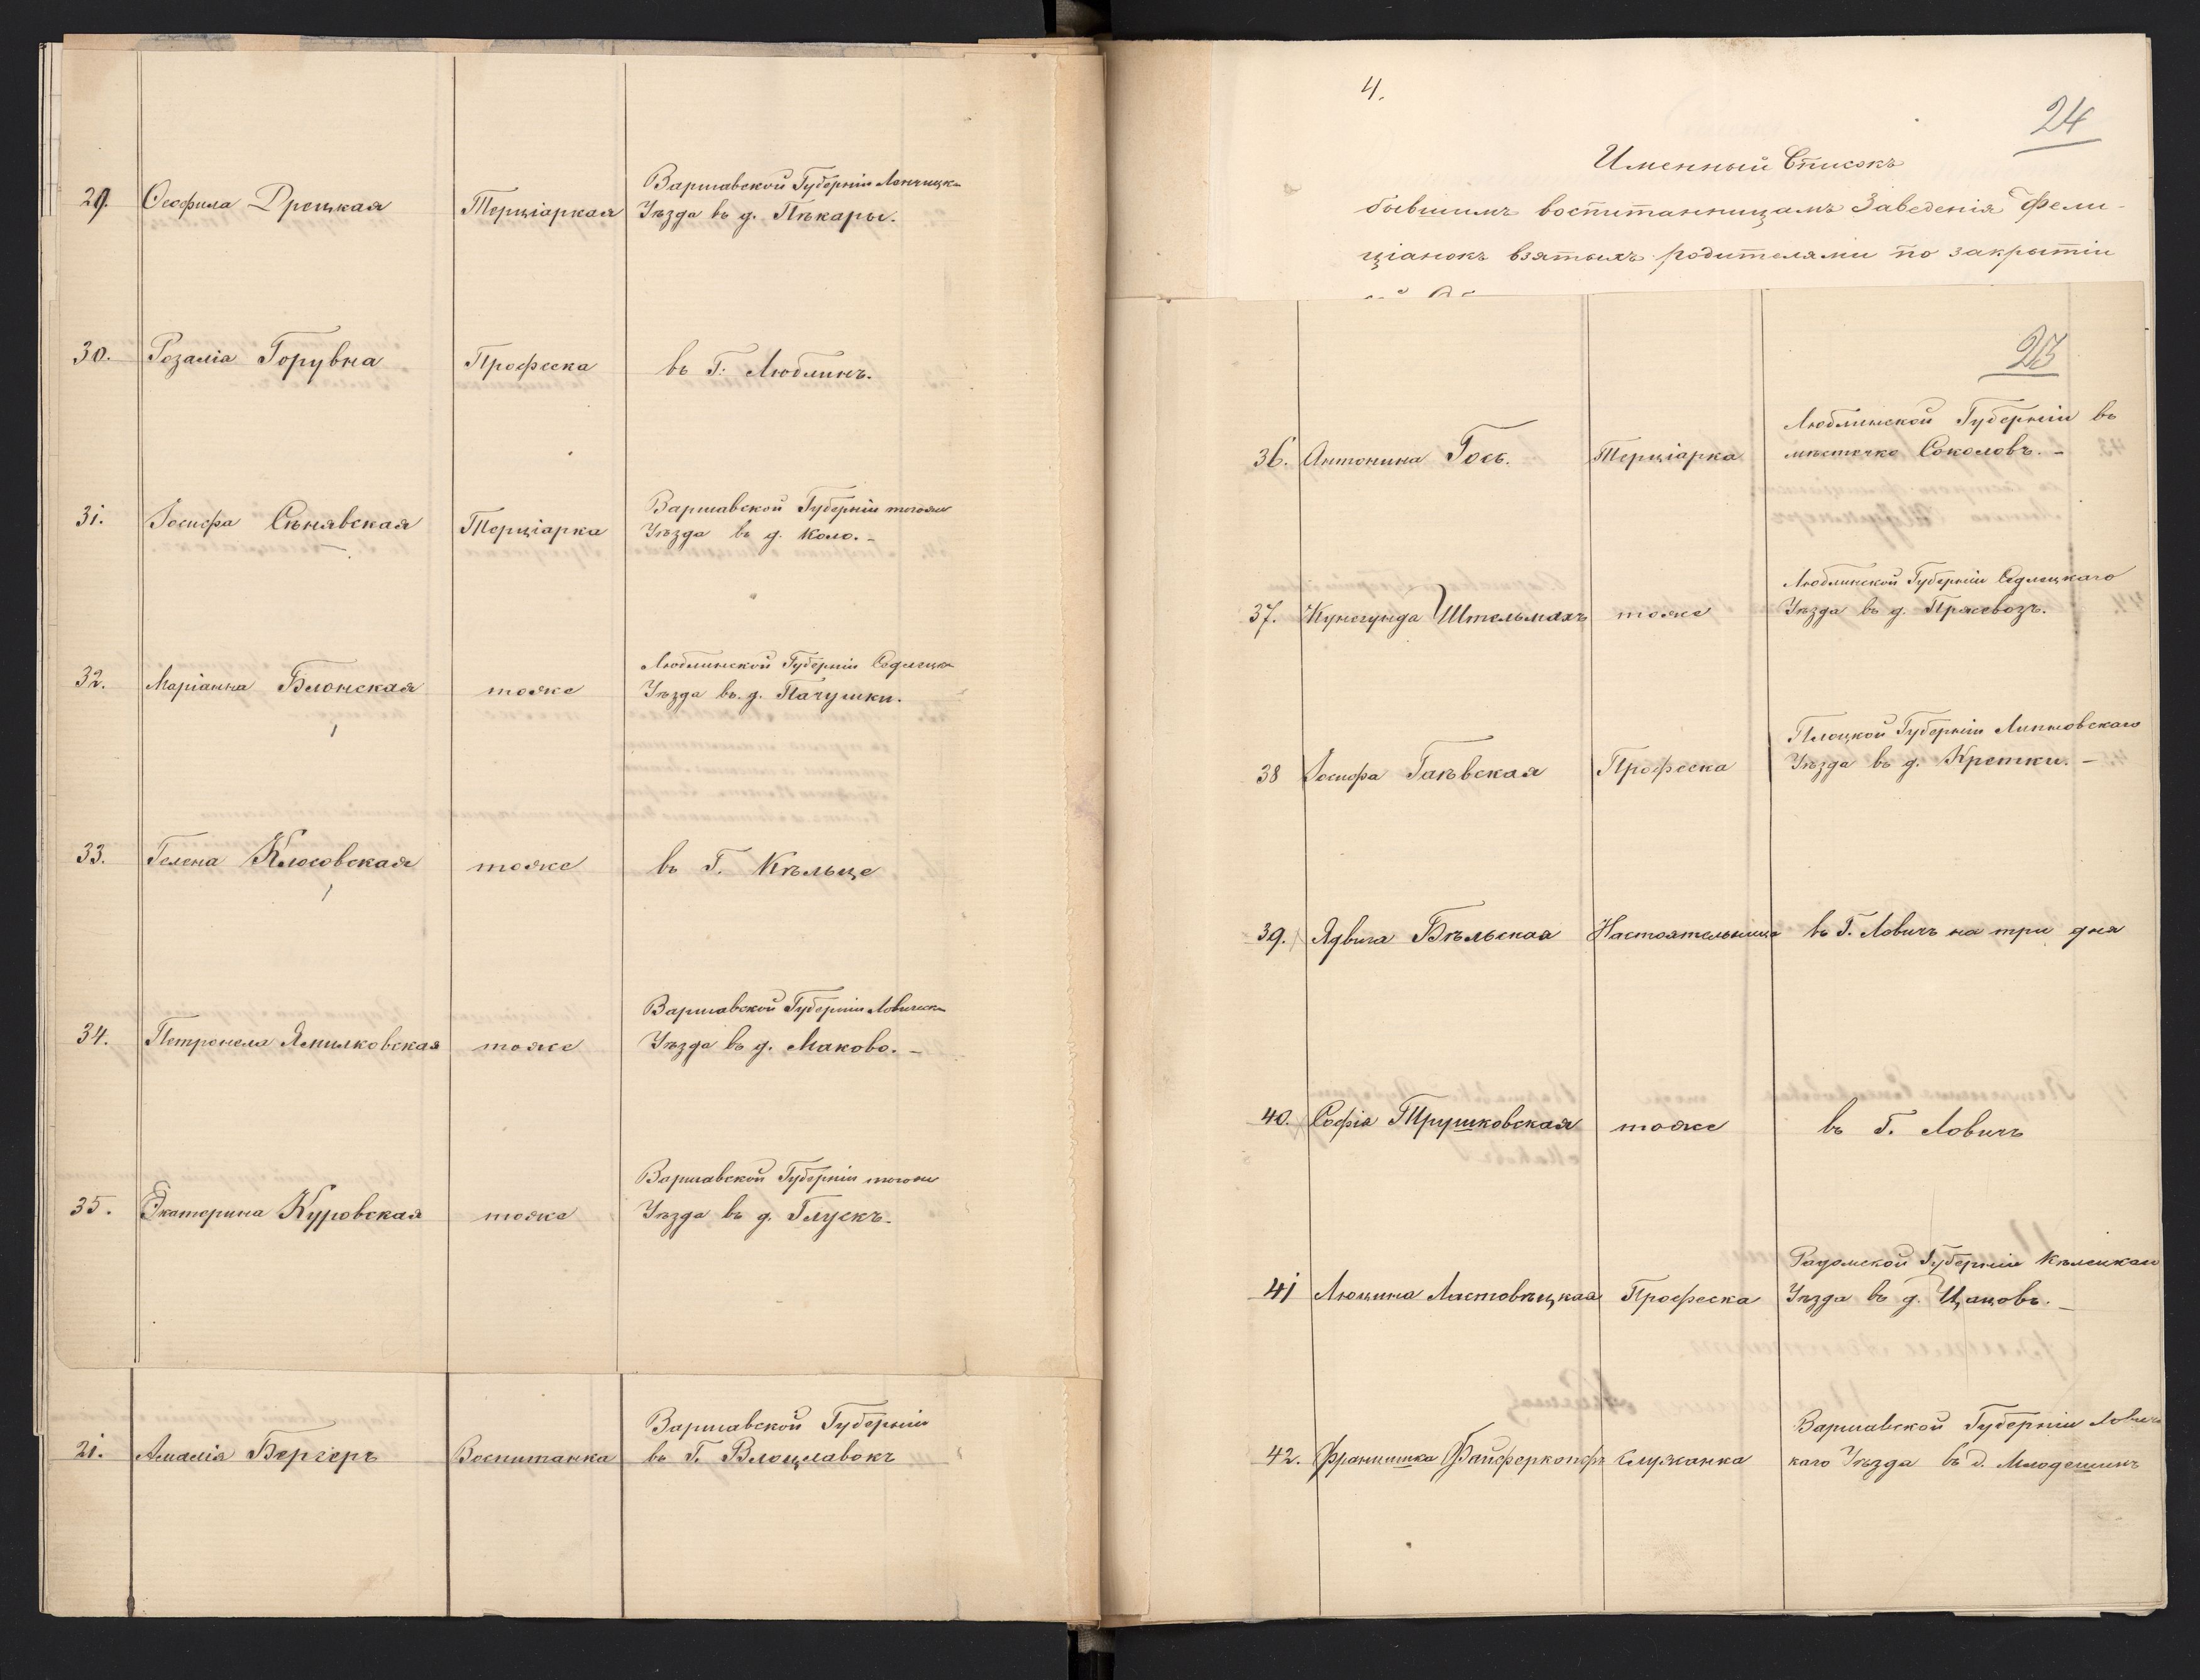 29. Ѳеофила Дрецкая Терціаркая Варшавской Губерніи Лончицк
Уѣзда въ д. Пѣкары.
30. Розалія Горувна Професка въ Г. Люблинъ.
31. Іосифа Сѣнявская Терціарка Варшавской Губерніи тогоже
Уѣзда въ д. Коло. -
32. Маріанна Блонская тоже Люблинской Губерніи Седлецк
Уѣзда въ д. Пачушки.
33. Гелена Клосовская тоже въ Г. Кѣльце
34. Петронела Ямилковская тоже Варшавской Губерніи Ловическ
Уѣзда въ д. Маково. -
35. Екатерина Куровская тоже Варшавской Губерніи тогоже
Уѣзда въ д. Глускъ.
21. Амалія Бергеръ Воспитанка Варшавской Губерніи
въ Г. Влоцлавокъ
4.
24
Именный Списокъ
бывшимъ воспитанницамъ Заведенія Фели-
ціанокъ взятыхъ родителями по закрытіи
23
36. Антонина Гось. Терціарка Люблинской Губерніи въ
мѣстечко Соколовъ. -
37. Кунегунда Штельмахъ тоже Люблинской Губерніи Седлецкаго
Уѣзда въ д. Прясвозъ.
38 Іосифа Гаѣвская Професка Плоцкой Губерніи Липновскаго
Уѣзда въ д. Кретки. -
39. Ядвига Бѣльская Настоятельница въ Г. Ловичъ на три дня
40. Софія Трушковская тоже въ Г. Ловичъ
41 Люцина Ластовѣцкая Професка Радомской Губерніи Кѣлецкаго
Уѣзда въ д. Цацовъ. -
42. Францишка Файферкопфъ Служанка Варшавской Губерніи Лович
каго Уѣзда въ д. Млодешинъ